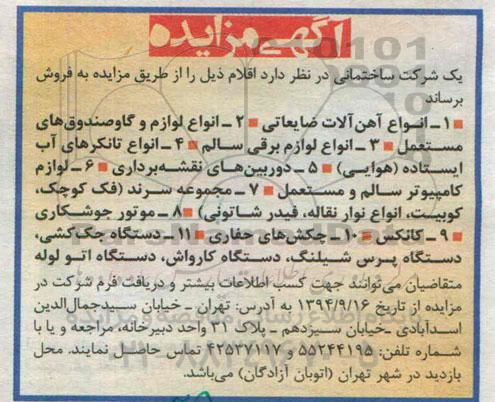 آگهی مزایده
یک شرکت ساختمانی در نظر دارد اقلام ذیل را از طریق مزایده به فروش
برساند
■ ۱ـ انـواع آهن‌آلات ضایعاتی ■ ۲ ـ انواع لوازم و گاوصندوق‌های
مستعمل ■ ۳ ـ انواع لوازم برقی سالم ■ ۴ـ انواع تانکرهای آب
ایستاده (هوایی) ■ ۵ ـ دوربین‌های نقشه‌برداری ■ ۶ـ لوازم
کامپیوتر سالم و مستعمل ■ ۷ ـ مجموعه سرند (فک کوچک،
کوبیت، انواع نوار نقاله، فیدر شاتونی) ■ ۸ـ موتور جوشکاری
■ ۹ ـ کانکس ■ ۱۰ـ چکش‌های حفاری ■ ۱۱ـ دستگاه جک‌کشی،
دستگاه پرس شیلنگ، دستگاه کارواش، دستگاه اتو لوله
متقاضیان می‌توانند جهت کسب اطلاعات بیشتر و دریافت فرم شرکت در
مزایده از تاریخ ۱۳۹۴/۹/۱۶ به آدرس: تهران ـ خیابان سیدجمال‌الدین
اسدآبادی ـ خیابان سیزدهم ـ پلاک ۳۱ واحد دبیرخانه، مراجعه و یا با
شماره تلفن: ۵۵۲۴۴۱۹۵ و ۴۲۵۳۷۱۱۷ تماس حاصل نمایند. محل
بازدید در شهر تهران (اتوبان آزادگان) می‌باشد.